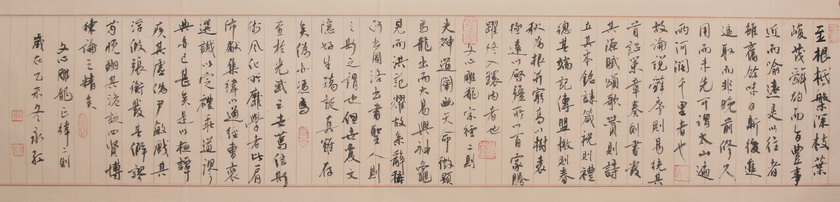 至根柢槃深枝葉
峻茂辭約而旨豐事
近而喻遠是以往者
雖舊餘味日新後進
追取而非晚前修久
用而未先可謂太山遍
雨河潤千里者也
故論說辭序則易統其
首詔策章奏則書發
其源賦頌歌讚則詩
立其本銘誄箴祝則禮
總其端記傳盟檄則春
秋為根並窮高以樹表
極遠以啟疆所以百家騰
躍終入環內者也
文心雕龍宗經二則
夫神道闡幽天命微顯
馬龍出而大易興神龜
見而洪範耀故繫辭稱
河出圖洛出書聖人則
之斯之謂也但世夐文
隱好生矯誕真雖存
矣偽亦憑焉
至於光武之世篤信斯
術風化所靡學者比肩
沛獻集緯以通經曹褒
選讖以定禮乖道謬
典亦已甚矣是以桓譚
疾其虛偽尹敏戲其
浮假張衡發其僻謬
荀悅明其詭誕四賢博
練論之精矣
文心雕龍正緯二則
歲在乙未冬永